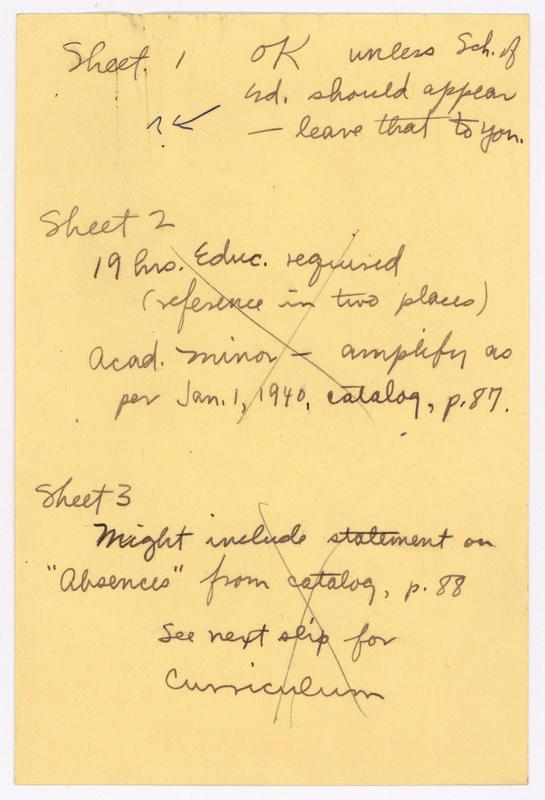 Sheet. 1 OK unless Sch. of
Ed. should appear
— leave that to you.
Sheet 2
19 hrs. Educ. required
(reference in two places)
Acad. minor — amplify as
per Jan. 1, 1940, catalog, p. 87.
Sheet 3
Might include statement on
"Absences" from catalog, p. 88
See next slip for
Curriculum